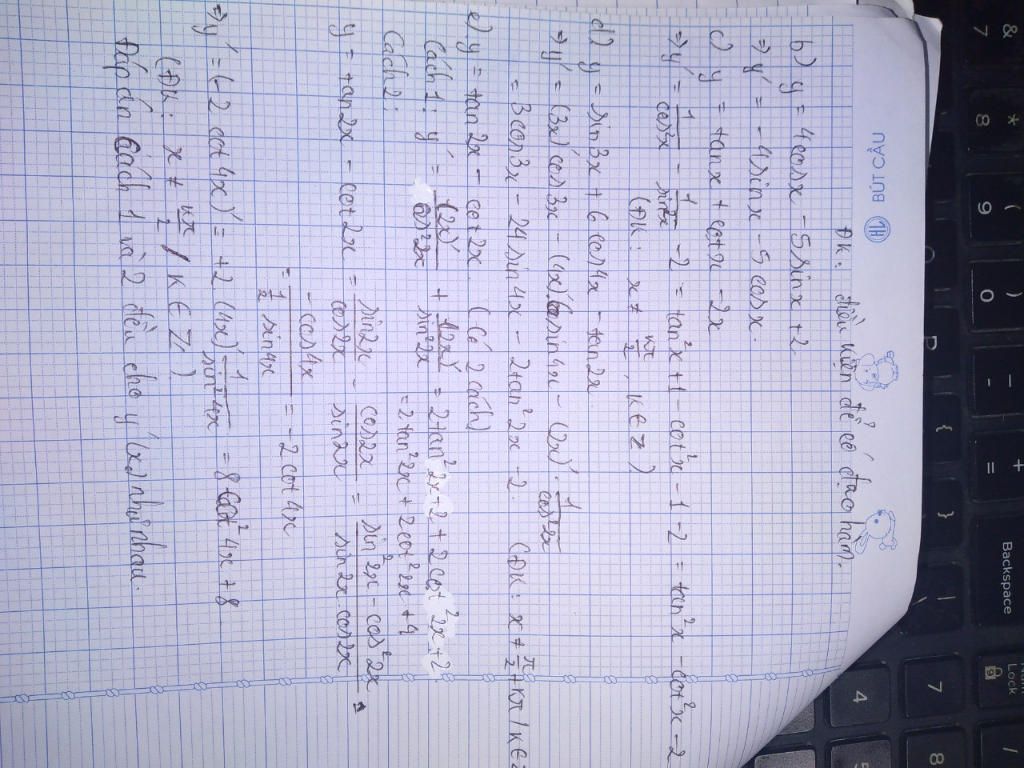 BÚT CẦU
ĐK: điều kiện để có đạo hàm.
b) y = 4cosx - 5sinx + 2
⇒ y' = -4sinx - 5cosx.
c) y = tanx + cotx - 2x
⇒ y' = 1/cos²x - 1/sin²x - 2 = tan²x + 1 - cot²x - 1 - 2 = tan²x - cot²x - 2
(ĐK: x ≠ kπ/2, k ∈ Z)
d) y = sin3x + 6cos4x - tan2x
⇒ y' = (3x)'cos3x - (4x)'6sin4x - (2x)'. 1/cos²2x
= 3cos3x - 24sin4x - 2tan²2x - 2. (ĐK: x ≠ π/2 + kπ / k ∈ Z
e) y = tan2x - cot2x. (Có 2 cách)
Cách 1: y' = (2x)'/cos²2x + (2x)'/sin²2x = 2tan²2x + 2 + 2cot²2x + 2
= 2tan²2x + 2cot²2x + 4
Cách 2:
y = tan2x - cot2x = sin2x/cos2x - cos2x/sin2x = (sin²2x - cos²2x)/(sin2x cos2x)
= -cos4x/(1/2 . sin4x) = -2cot4x
⇒ y' = (-2cot4x)' = +2(4x)' 1/sin²4x = 8cot²4x + 8
(ĐK: x ≠ kπ/2 / k ∈ Z)
Đáp án Cách 1 và 2 đều cho y'(x) như nhau.
&
7
*
8
(
9
)
0
-
+
=
Backspace
P
{
[
}
]
|
\
Lock
/
7
8
4
5